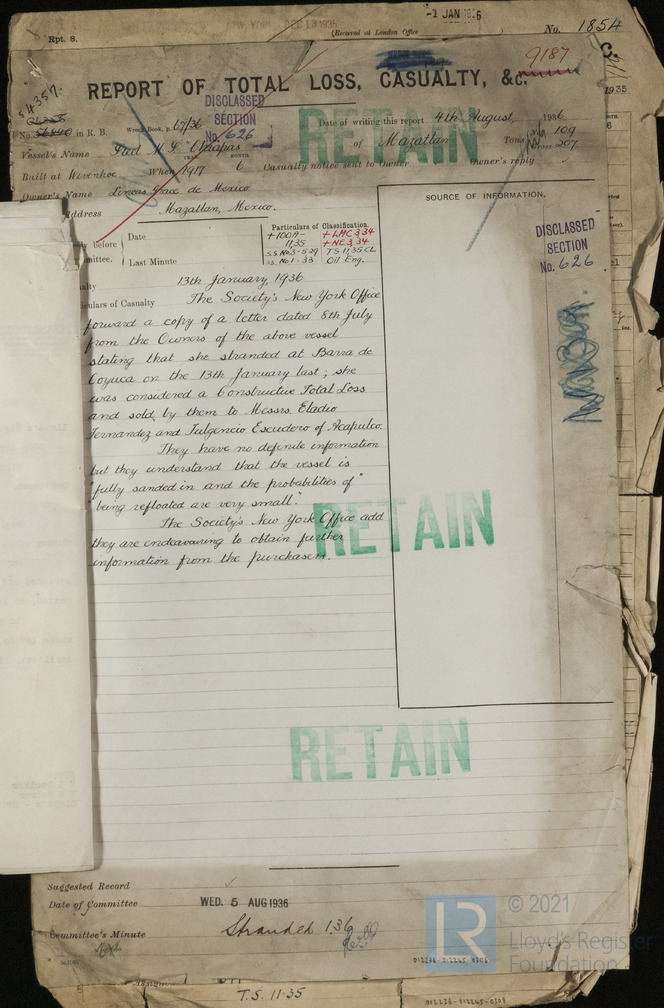 -1 JAN 1936
NEW YORK DEC 13 1935
Rpt. 8.
(Received at London Office
No. 1854
C.
9187
54357.
REPORT OF TOTAL LOSS, CASUALTY, &c.
DISCLASSED
SECTION
No. 626
RETAIN
Date of writing this report 4th August 1936
No. in R. B.
Wreck Book, p. 67/36
Vessel's Name
Chiapas
of Mazatlan
Tons
Net 109
Gross 207
Built at
When 1917
YEAR
MONTH
6
Casualty notice sent to Owner
Owner's reply
Owner's Name
de Mexico
Address
Mazatlan, Mexico.
SOURCE OF INFORMATION.
DISCLASSED
SECTION
No. 626
before
Committee.
Date
Last Minute
Particulars of Classification.
+100A-
11,35
S.S. No 3-5.29
S.S. No 1-33
+ LMC 3 34
+ NE 3 34
T.S 11,35 CL
Oil Eng.
13th January, 1936
Particulars of Casualty
The Society's New York Office
forward a copy of a letter dated 8th July
from the Owners of the above vessel
stating that she stranded at Barra de
Coyuca on the 13th January last; she
was considered a Constructive Total Loss
and sold by them to Messrs. Eladio
Fernandez and Fulgencio Escudero of Acapulco.
They have no definite information
but they understand that the vessel is
"fully sanded in and the probabilities of"
"being refloated are very small".
The Society's New York Office add
they are endeavouring to obtain further
information from the purchasers.
RETAIN
RETAIN
Suggested Record
Date of Committee
WED. 5 AUG 1936
Committee's Minute
Stranded 1.36
LR
© 2021
Lloyd's Register
Foundation
T.S. 11.35